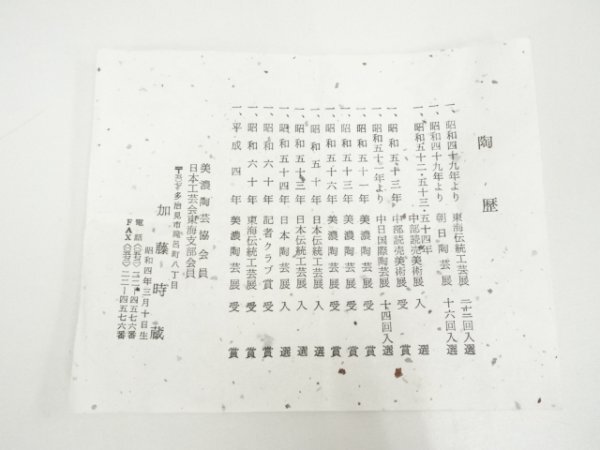 陶歴
一、昭和四十九年より 東海伝統工芸展 二十二回入選
一、昭和四十九年より 朝日陶芸展 十六回入選
一、昭和五十二・五十三・五十四年 中部読売美術展 入選
一、昭和五十三年 中部読売美術展 受賞
一、昭和五十二年より 中日国際陶芸展 十四回入選
一、昭和五十一年 美濃陶芸展 受賞
一、昭和五十三年 美濃陶芸展 受賞
一、昭和五十六年 美濃陶芸展 受賞
一、昭和五十年 日本伝統工芸展 入選
一、昭和五十三年 日本伝統工芸展 入選
一、昭和五十四年 日本陶芸展 入選
一、昭和六十年 記者クラブ賞 受賞
一、昭和六十年 東海伝統工芸展 受賞
一、平成四年 美濃陶芸展 受賞
美濃陶芸協会会員
日本工芸会東海支部会員
多治見市滝呂町八丁目
加藤時蔵
昭和四年三月十日生
電話 二二-四五七六番
FAX 二二-四五七六番